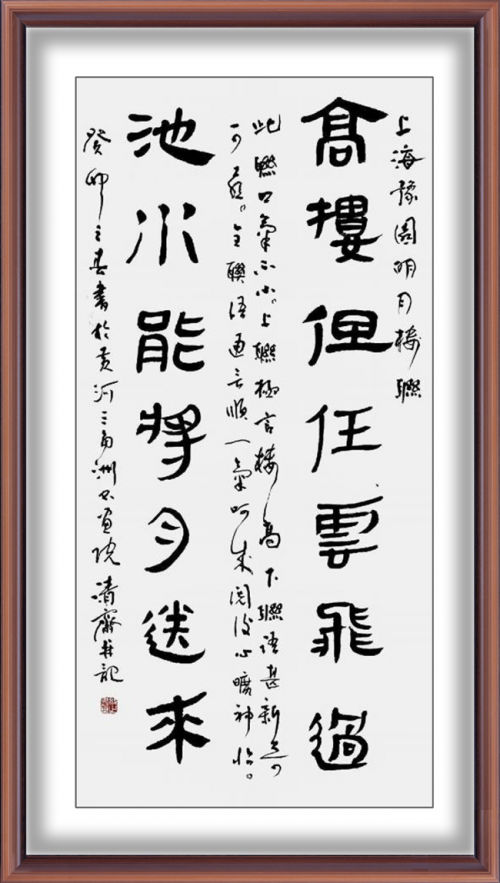 上海豫園明月樓聯
高樓但任雲飛過
此聯口氣不小。上聯極言樓高下聯語甚新
可意。全聯語通言順一氣呵成閱後心曠神怡。
池水能將月送來
癸卯之春書於黃河三角洲書畫院清齋并記